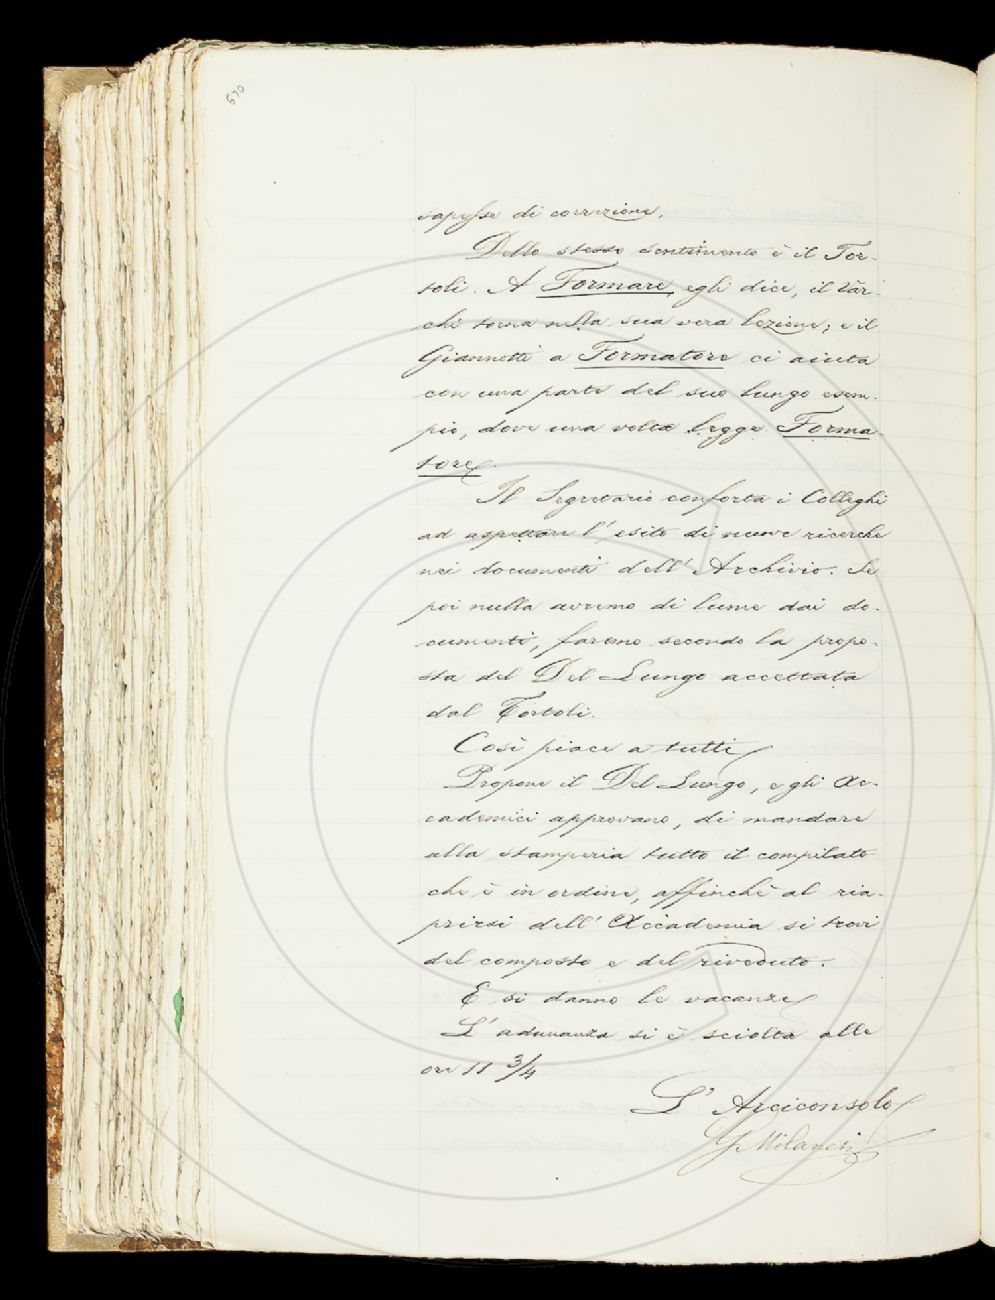 670
sapesse di correzione.
Dello stesso sentimento è il Tor-
toli. A Formare, egli dice, il Var-
chi torna nella sua vera lezione; e il
Giannotti a Formatore ci aiuta
con una parte del suo lungo esem-
pio, dove una volta legge Forma-
tore.
Il Segretario conforta i Colleghi
ad aspettare l'esito di nuove ricerche
nei documenti dell'Archivio. Se
poi nulla avremo di lume dai do-
cumenti, faremo secondo la propo-
sta del Del Lungo accettata
dal Tortoli.
Così piace a tutti
Propone il Del Lungo, e gli Ac-
cademici approvano, di mandare
alla stamperia tutto il compilato
che è in ordine, affinchè al ria-
prirsi dell'Accademia si trovi
del composto e del riveduto.
E si danno le vacanze
L'adunanza si è sciolta alle
ore 11 3/4
L'Arciconsolo
G Milanesi